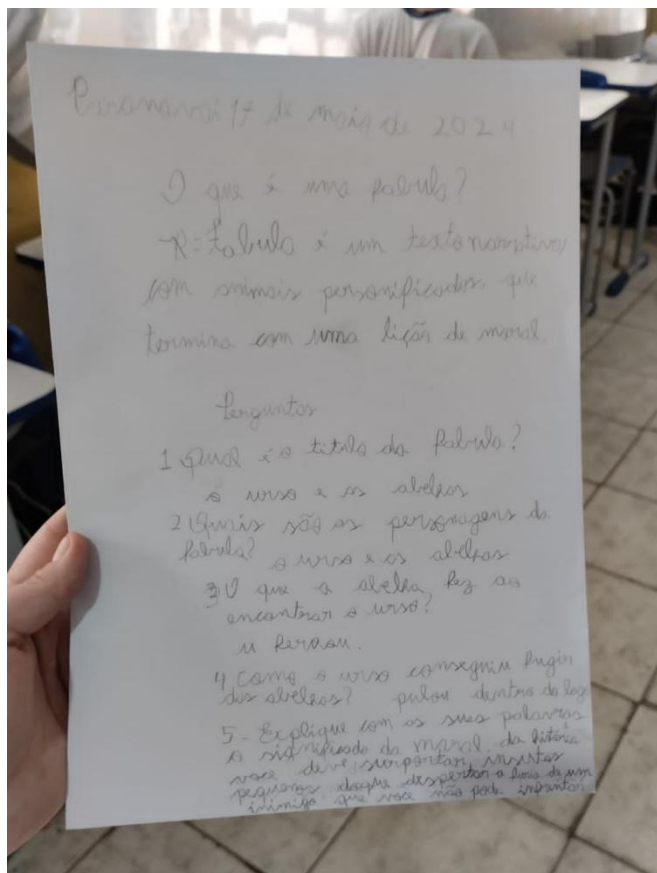 Paranavaí 17 de maio de 2024
O que é uma fabula?
R= Fabula é um texto narrativo,
com animais personificados, que
termina com uma lição de moral.
Perguntas
1 Qual é o titulo da fabula?
o urso e as abelhas
2 Quais são os personagens da
fabula? o urso e as abelhas
3 O que a abelha fez ao
encontrar o urso?
u ferrou.
4 Como o urso conseguiu fugir
das abelhas? pulou dentro do lago
5 - Explique com as suas palavras
o significado da moral da história
voce deve surportar insutos
pequenos doque despertar a furia de um
inimigo que voce não pode infrentar